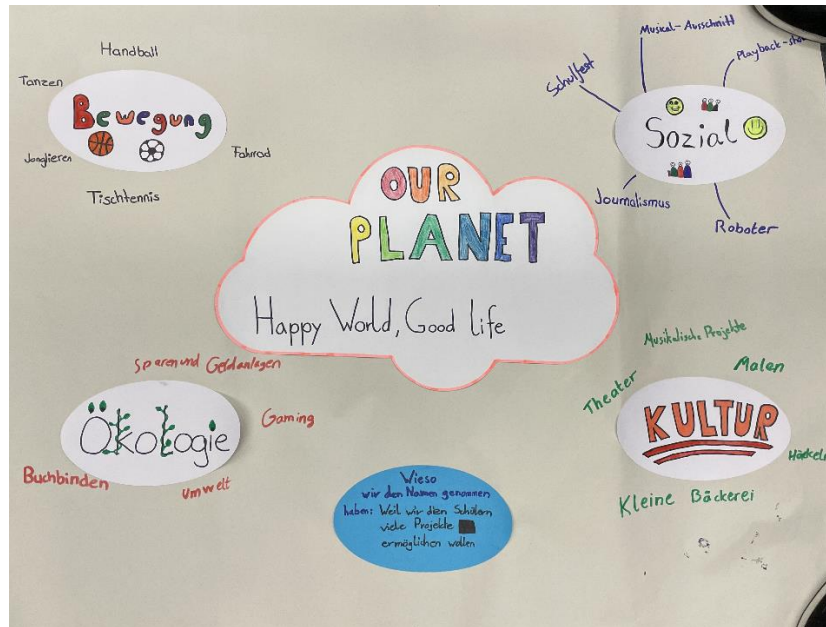 Handball
Tanzen
Bewegung
Jonglieren
Fahrrad
Tischtennis
Musical-Ausschnitt
Schulfest
Sozial
Journalismus
Roboter
OUR
PLANET
Happy World, Good life
Sparen und Geldanlagen
Ökologie
Gaming
Buchbinden
Umwelt
Musikalische Projekte
Malen
Theater
KULTUR
Kleine Bäckerei
Wieso
wir den Namen genommen
haben: Weil wir den Schülern
viele Projekte
ermöglichen wollen